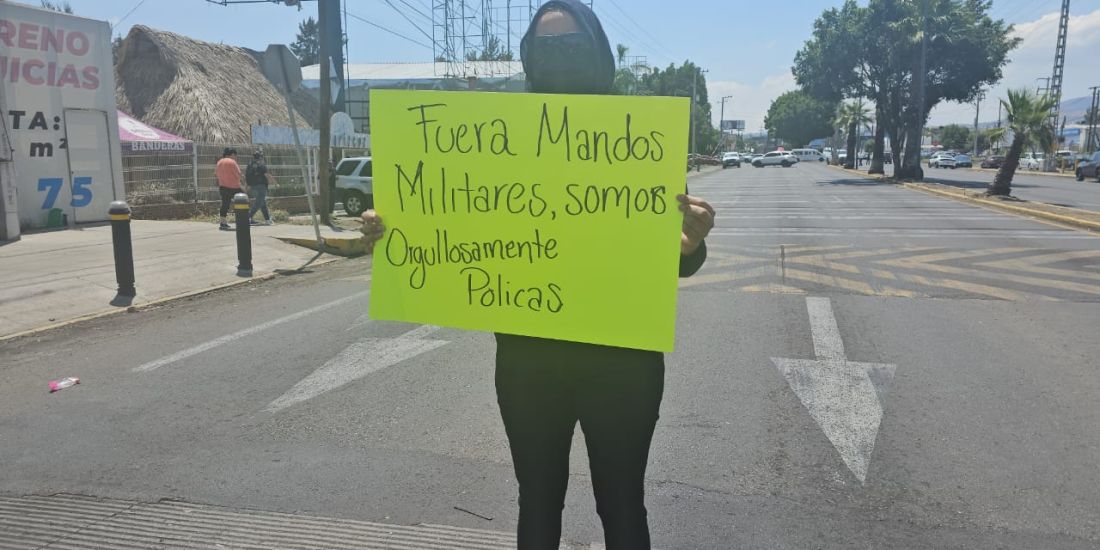 RENO
UICIAS
TA:
m²
75
BANDERAS
Fuera Mandos
Militares, somos
Orgullosamente
Policas